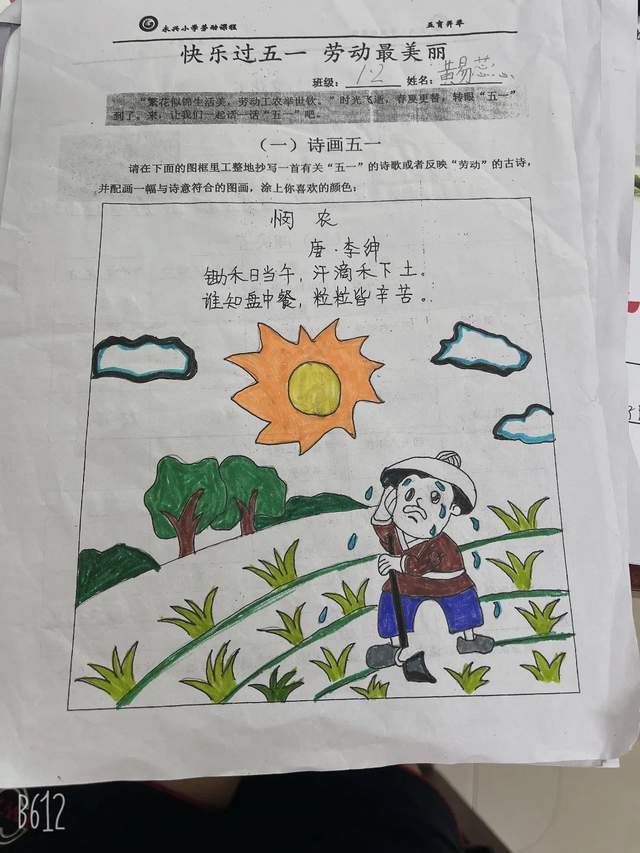 永兴小学劳动课程 五育并举
快乐过五一 劳动最美丽
班级：12 姓名：黄易蕊
“繁花似锦生活美，劳动工农举世钦。”时光飞逝，春夏更替，转眼“五一”
到了，来，让我们一起话一话“五一”吧。
（一）诗画五一
请在下面的图框里工整地抄写一首有关“五一”的诗歌或者反映“劳动”的古诗，
并配画一幅与诗意符合的图画，涂上你喜欢的颜色：
悯 农
唐·李绅
锄禾日当午，汗滴禾下土。
谁知盘中餐，粒粒皆辛苦。
B612